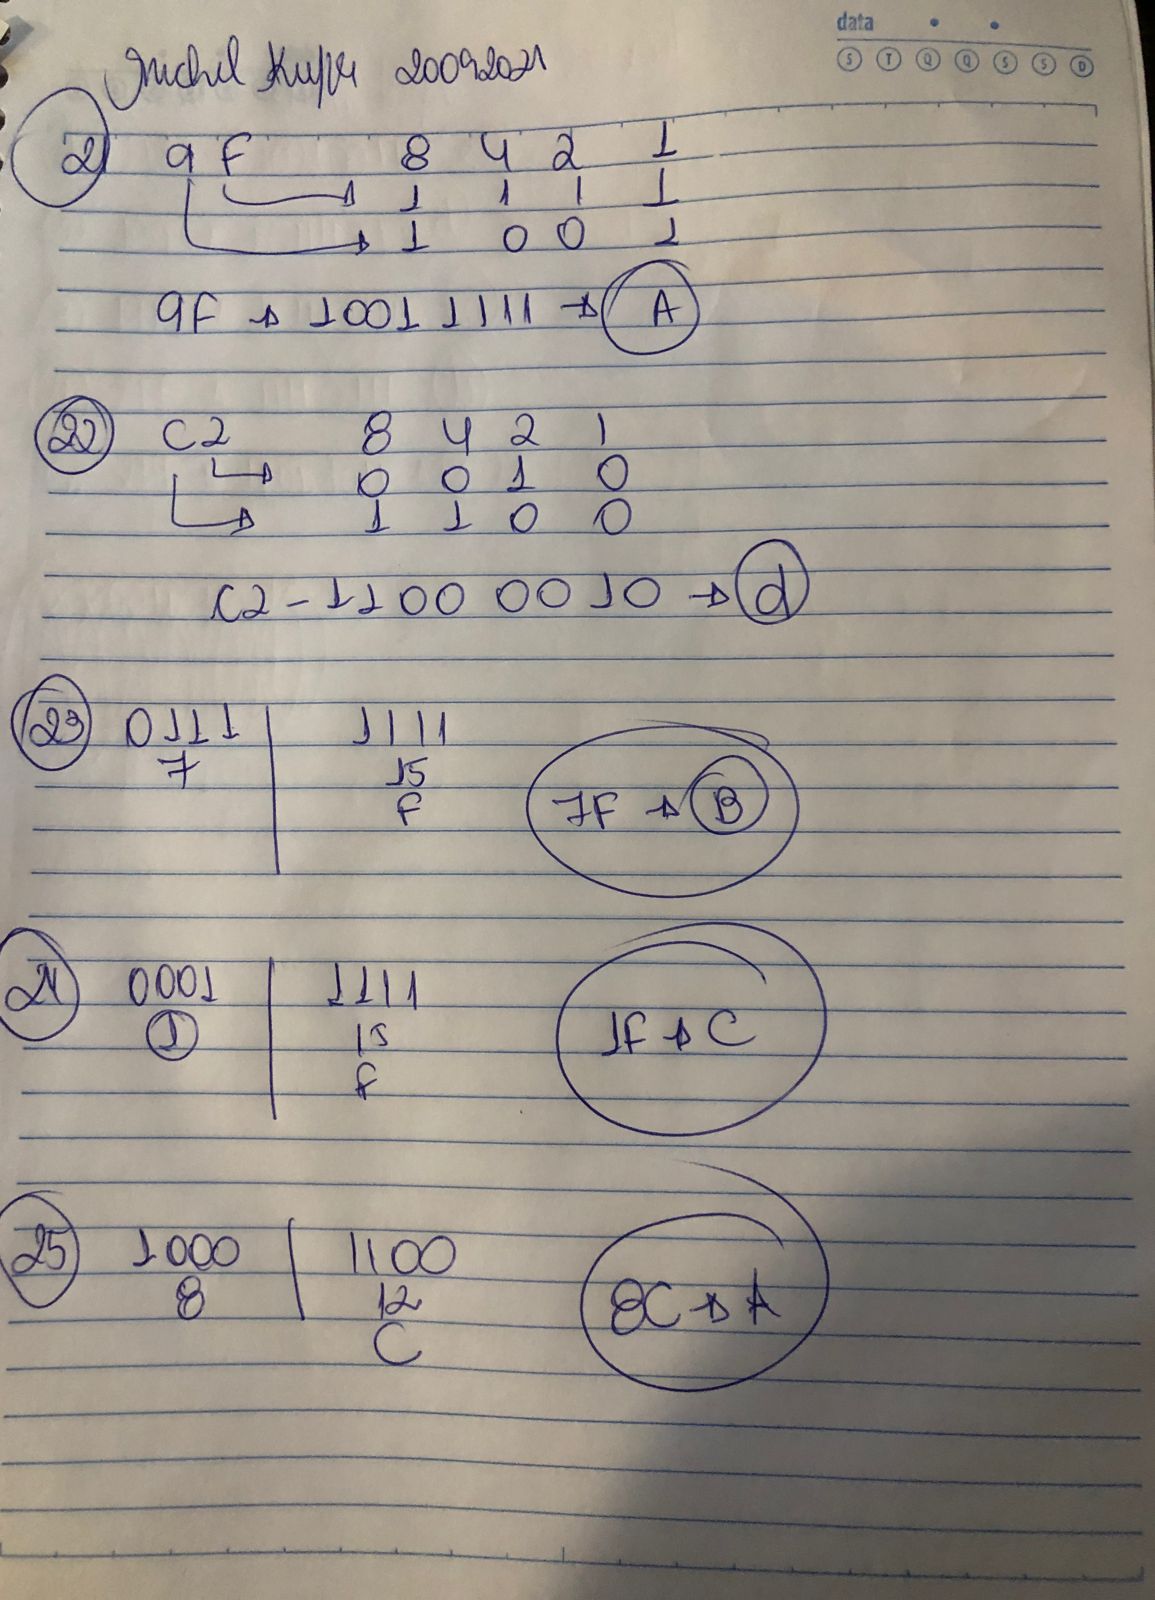 data
S T Q Q S S D
20092021
21 9F 8 4 2 1
1 1 1 1
1 0 0 1
9F → 1001 1111 → A
22 C2 8 4 2 1
0 0 1 0
1 1 0 0
C2 - 1100 0010 → d
23 0111 1111
7 15
F
7F → B
24 0001 1111
1 15
F
1F → C
25 1000 1100
8 12
C
8C → A